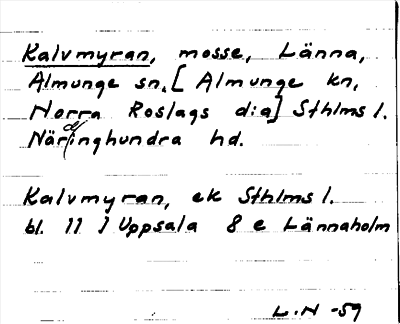 Kalvmyran, mosse, Länna,
Almunge sn. [Almunge kn,
Norra Roslags d:a] Sthlms l.
Närdinghundra hd.
Kalvmyran, ek Sthlms l.
bl. 11 J Uppsala 8 e Lännaholm
L.N -59